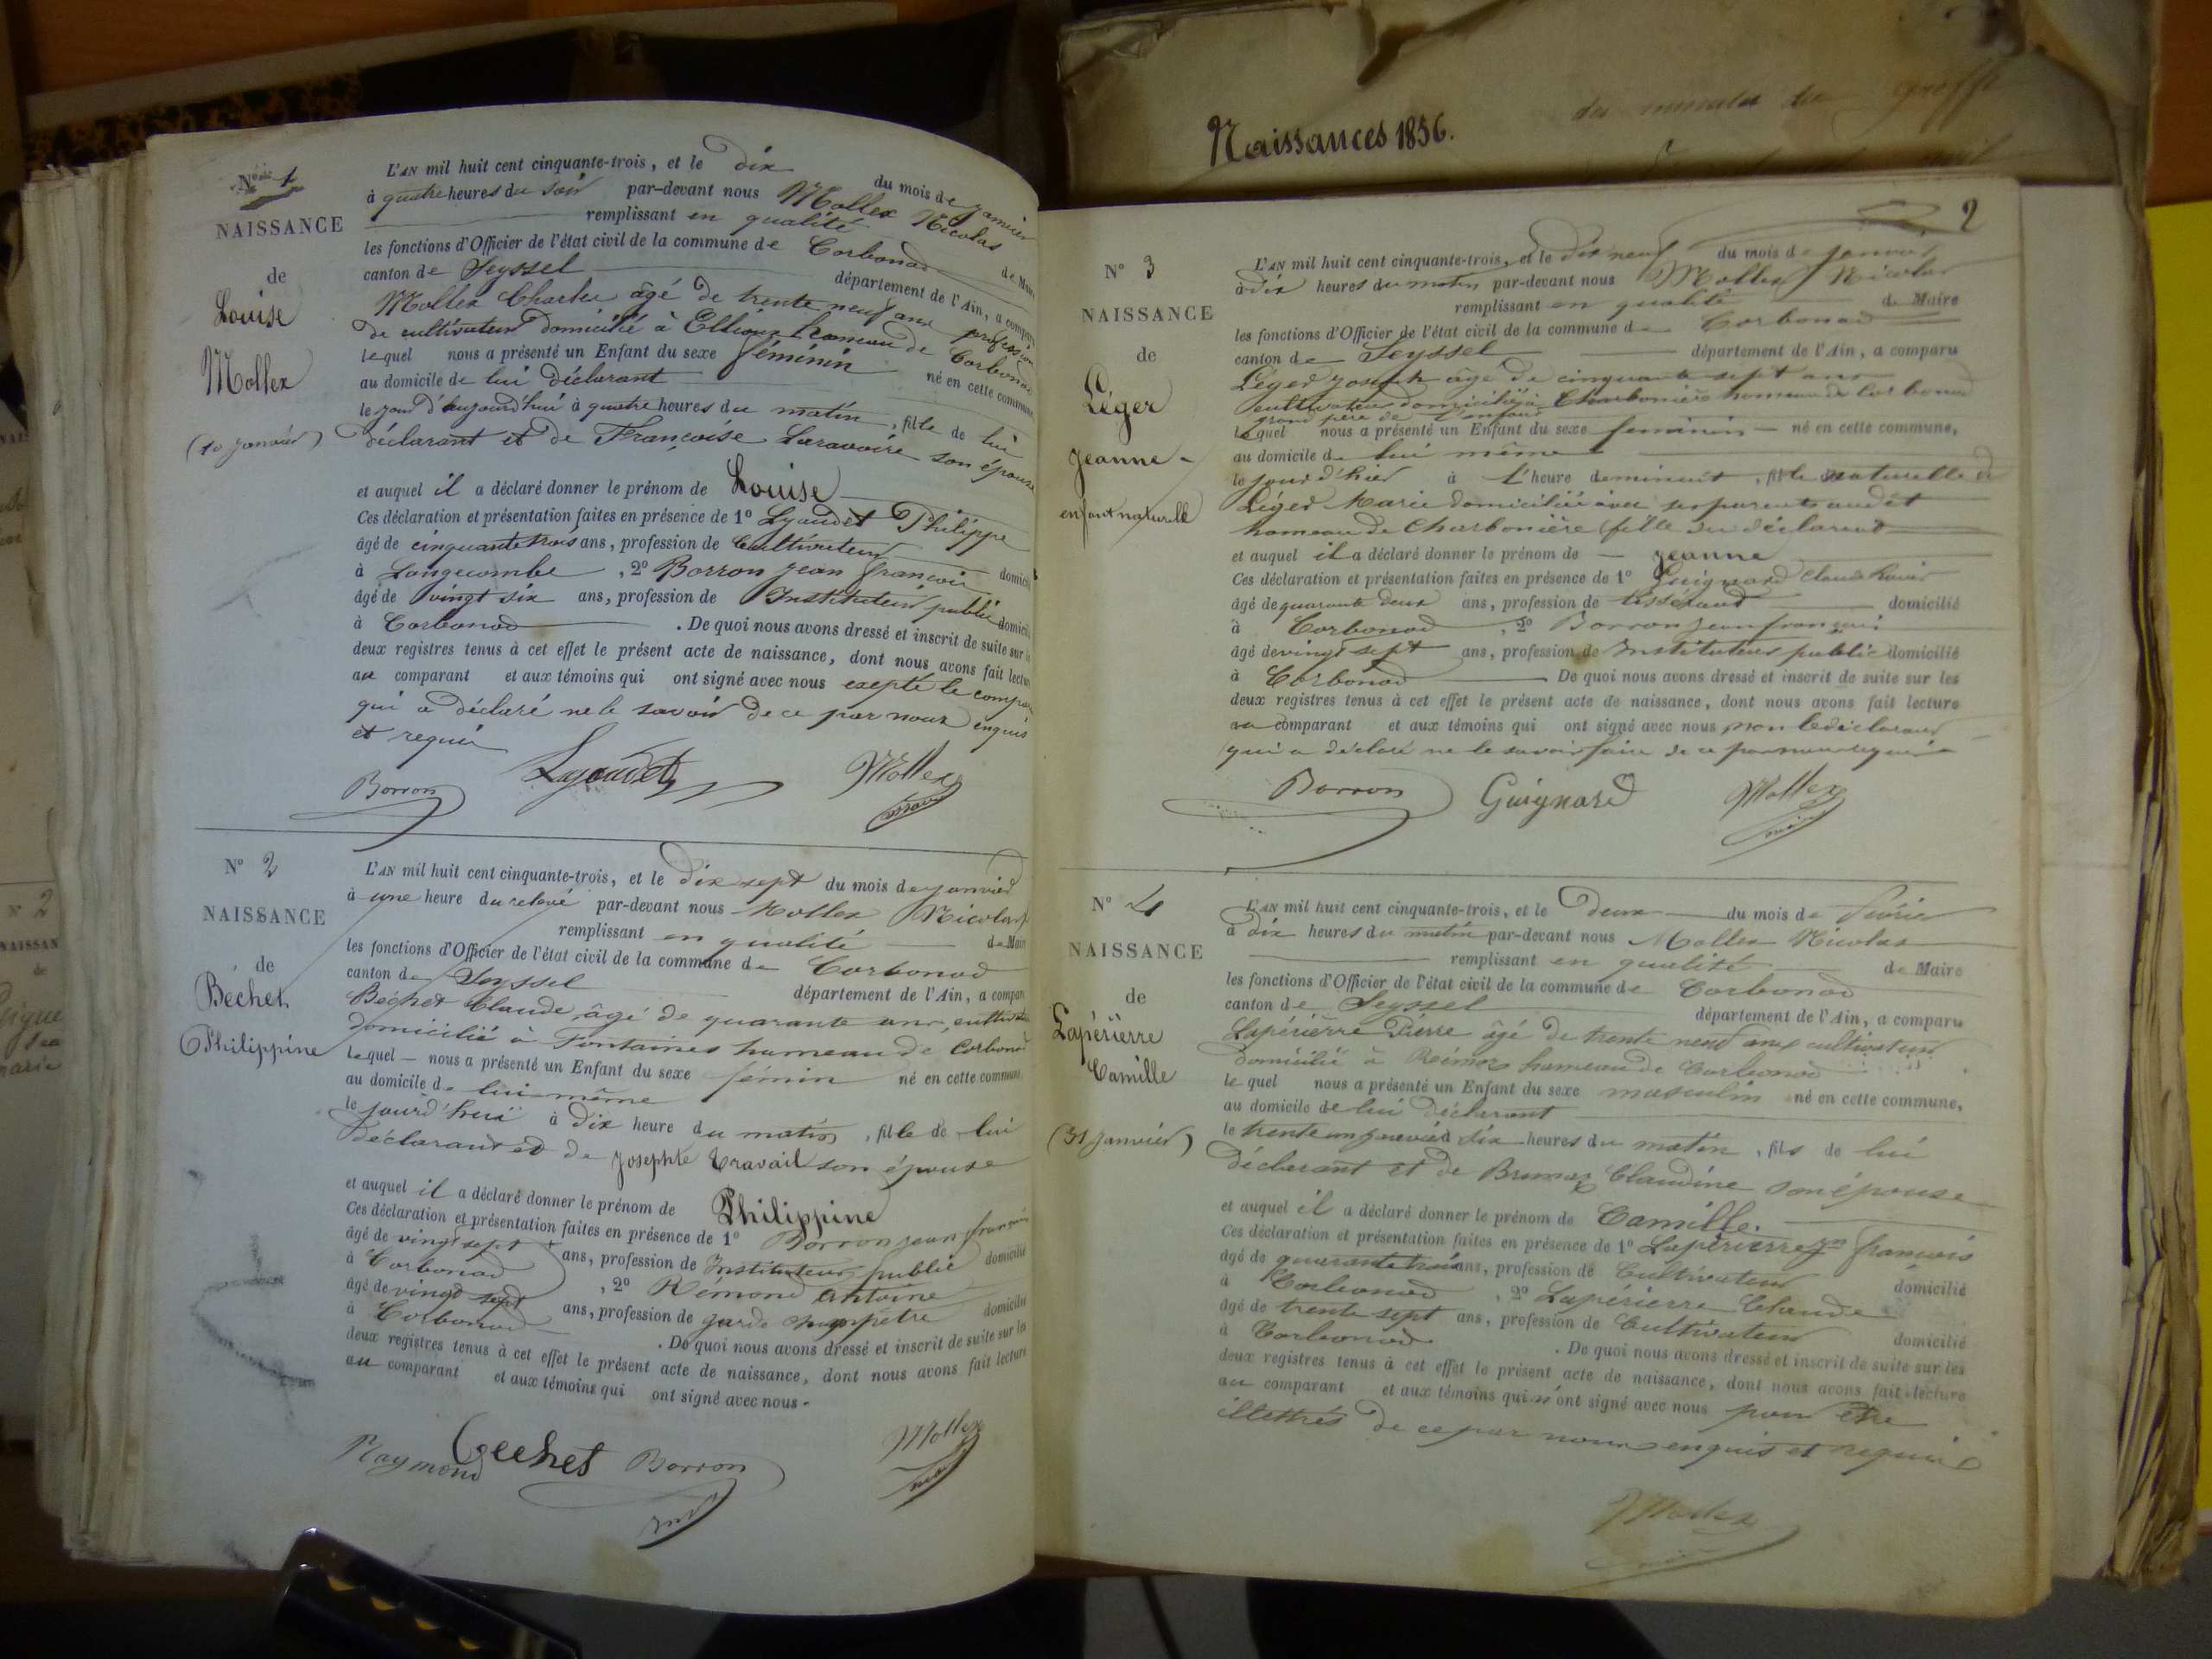 Naissances 1856.
des minutes du greffe
N° 1
NAISSANCE
de
Louise
Mollex
(10 Janvier)
L'AN mil huit cent cinquante-trois, et le dix du mois de Janvier
à quatre heures du soir par-devant nous Mollex Nicolas
remplissant en qualité de Maire
les fonctions d'Officier de l'état civil de la commune de Corbonod
canton de Seyssel département de l'Ain, a comparu
Mollex Charles âgé de trente neuf ans profession
de cultivateur domicilié à Ellioux hameau de Corbonod
lequel nous a présenté un Enfant du sexe féminin né en cette commune
au domicile de lui déclarant
le jour d'aujourd'hui à quatre heures du matin, fille de lui
déclarant et de Françoise Laravoire son épouse
et auquel il a déclaré donner le prénom de Louise
Ces déclaration et présentation faites en présence de 1° Lyaudet Philippe
âgé de cinquante trois ans, profession de Cultivateur domicilié
à Langecombe, 2° Borron Jean françois
âgé de vingt six ans, profession de Instituteur public domicilié
à Corbonod. De quoi nous avons dressé et inscrit de suite sur les
deux registres tenus à cet effet le présent acte de naissance, dont nous avons fait lecture
au comparant et aux témoins qui ont signé avec nous exepté le comparant
qui a déclaré ne le savoir de ce par nous enquis
et requis
Borron Lyaudet Mollex
maire
N° 2
NAISSANCE
de
Béchet
Philippine
L'AN mil huit cent cinquante-trois, et le dix sept du mois de janvier
à une heure du relevé par-devant nous Mollex Nicolas
remplissant en qualité de Maire
les fonctions d'Officier de l'état civil de la commune de Corbonod
canton de Seyssel département de l'Ain, a comparu
Béchet Claude, âgé de quarante ans, cultivateur
domicilié à Fontaines hameau de Corbonod
lequel nous a présenté un Enfant du sexe fémin né en cette commune
au domicile de lui-même
le jourd'hui à dix heure du matin, fille de lui
déclarant et de Josephte Travail son épouse
et auquel il a déclaré donner le prénom de Philippine
Ces déclaration et présentation faites en présence de 1° Borron jean françois
âgé de vingt sept ans, profession de Instituteur public domicilié
à Corbonod, 2° Rémond Antoine
âgé de vingt sept ans, profession de garde champêtre domicilié
à Corbonod. De quoi nous avons dressé et inscrit de suite sur les
deux registres tenus à cet effet le présent acte de naissance, dont nous avons fait lecture
au comparant et aux témoins qui ont signé avec nous.
Raymond Bechet Borron Mollex
2
N° 3
NAISSANCE
de
Léger
Jeanne
enfant naturelle
L'AN mil huit cent cinquante-trois, et le dix neuf du mois de janvier
à dix heures du matin par-devant nous Mollex Nicolas
remplissant en qualité de Maire
les fonctions d'Officier de l'état civil de la commune de Corbonod
canton de Seyssel département de l'Ain, a comparu
Léger Joseph âgé de cinquante sept ans
cultivateur domicilié à Charbonière hameau de Corbonod
grand père de l'enfant
lequel nous a présenté un Enfant du sexe feminin né en cette commune,
au domicile de lui même
le jour d'hier à l'heure de minuit, fille naturelle de
Léger Marie domiciliée avec ses parents audit
hameau de Charbonière fille du déclarant
et auquel il a déclaré donner le prénom de Jeanne
Ces déclaration et présentation faites en présence de 1° Guignard Claude Louis
âgé de quarante deux ans, profession de Tisserand domicilié
à Corbonod, 2° Borron jean françois
âgé de vingt sept ans, profession de Instituteur public domicilié
à Corbonod De quoi nous avons dressé et inscrit de suite sur les
deux registres tenus à cet effet le présent acte de naissance, dont nous avons fait lecture
au comparant et aux témoins qui ont signé avec nous non le déclarant
qui a déclaré ne le savoir faire de ce par nous requis
Borron Guignard Mollex
maire
N° 4
NAISSANCE
de
Lapérierre
Camille
(31 janvier)
L'AN mil huit cent cinquante-trois, et le deux du mois de février
à dix heures du matin par-devant nous Mollex Nicolas
remplissant en qualité de Maire
les fonctions d'Officier de l'état civil de la commune de Corbonod
canton de Seyssel département de l'Ain, a comparu
Lapérierre Pierre âgé de trente neuf ans cultivateur
domicilié à Rémoz hameau de Corbonod
lequel nous a présenté un Enfant du sexe masculin né en cette commune,
au domicile de lui déclarant
le trente un janvier à dix heures du matin, fils de lui
déclarant et de Brunaz Claudine son épouse
et auquel il a déclaré donner le prénom de Camille.
Ces déclaration et présentation faites en présence de 1° Lapérierre jn francois
âgé de quarante trois ans, profession de Cultivateur domicilié
à Corbonod, 2° Lapérierre Claude
âgé de trente sept ans, profession de Cultivateur domicilié
à Corbonod. De quoi nous avons dressé et inscrit de suite sur les
deux registres tenus à cet effet le présent acte de naissance, dont nous avons fait lecture
au comparant et aux témoins qui n'ont signé avec nous pour être
illettrés de ce par nous enquis et requis
Mollex